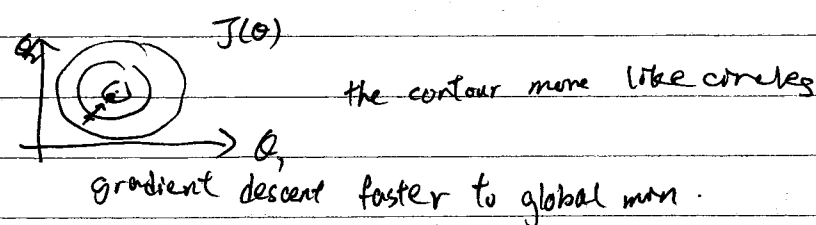 J(θ)
θ₂
the contour more like circles
θ₁
gradient descent faster to global min.